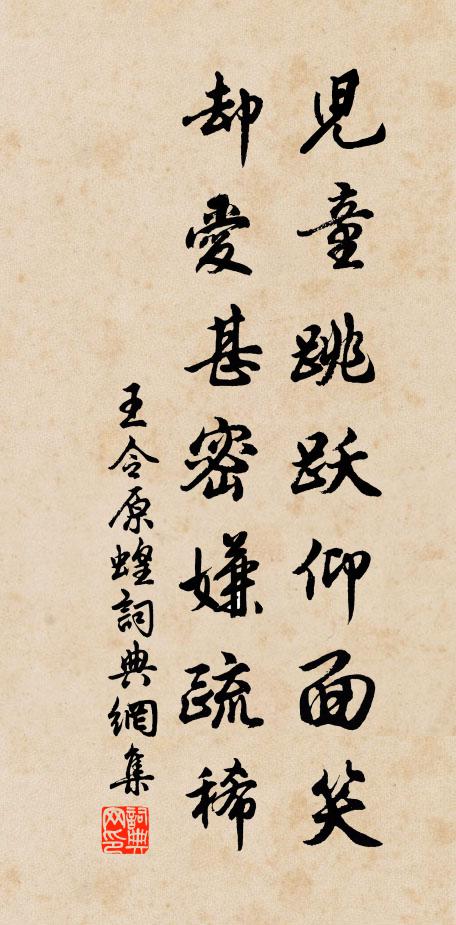 兒童跳跃仰面笑
却愛甚密嫌疏稀
王令原蝗詞典網集
詞典网印